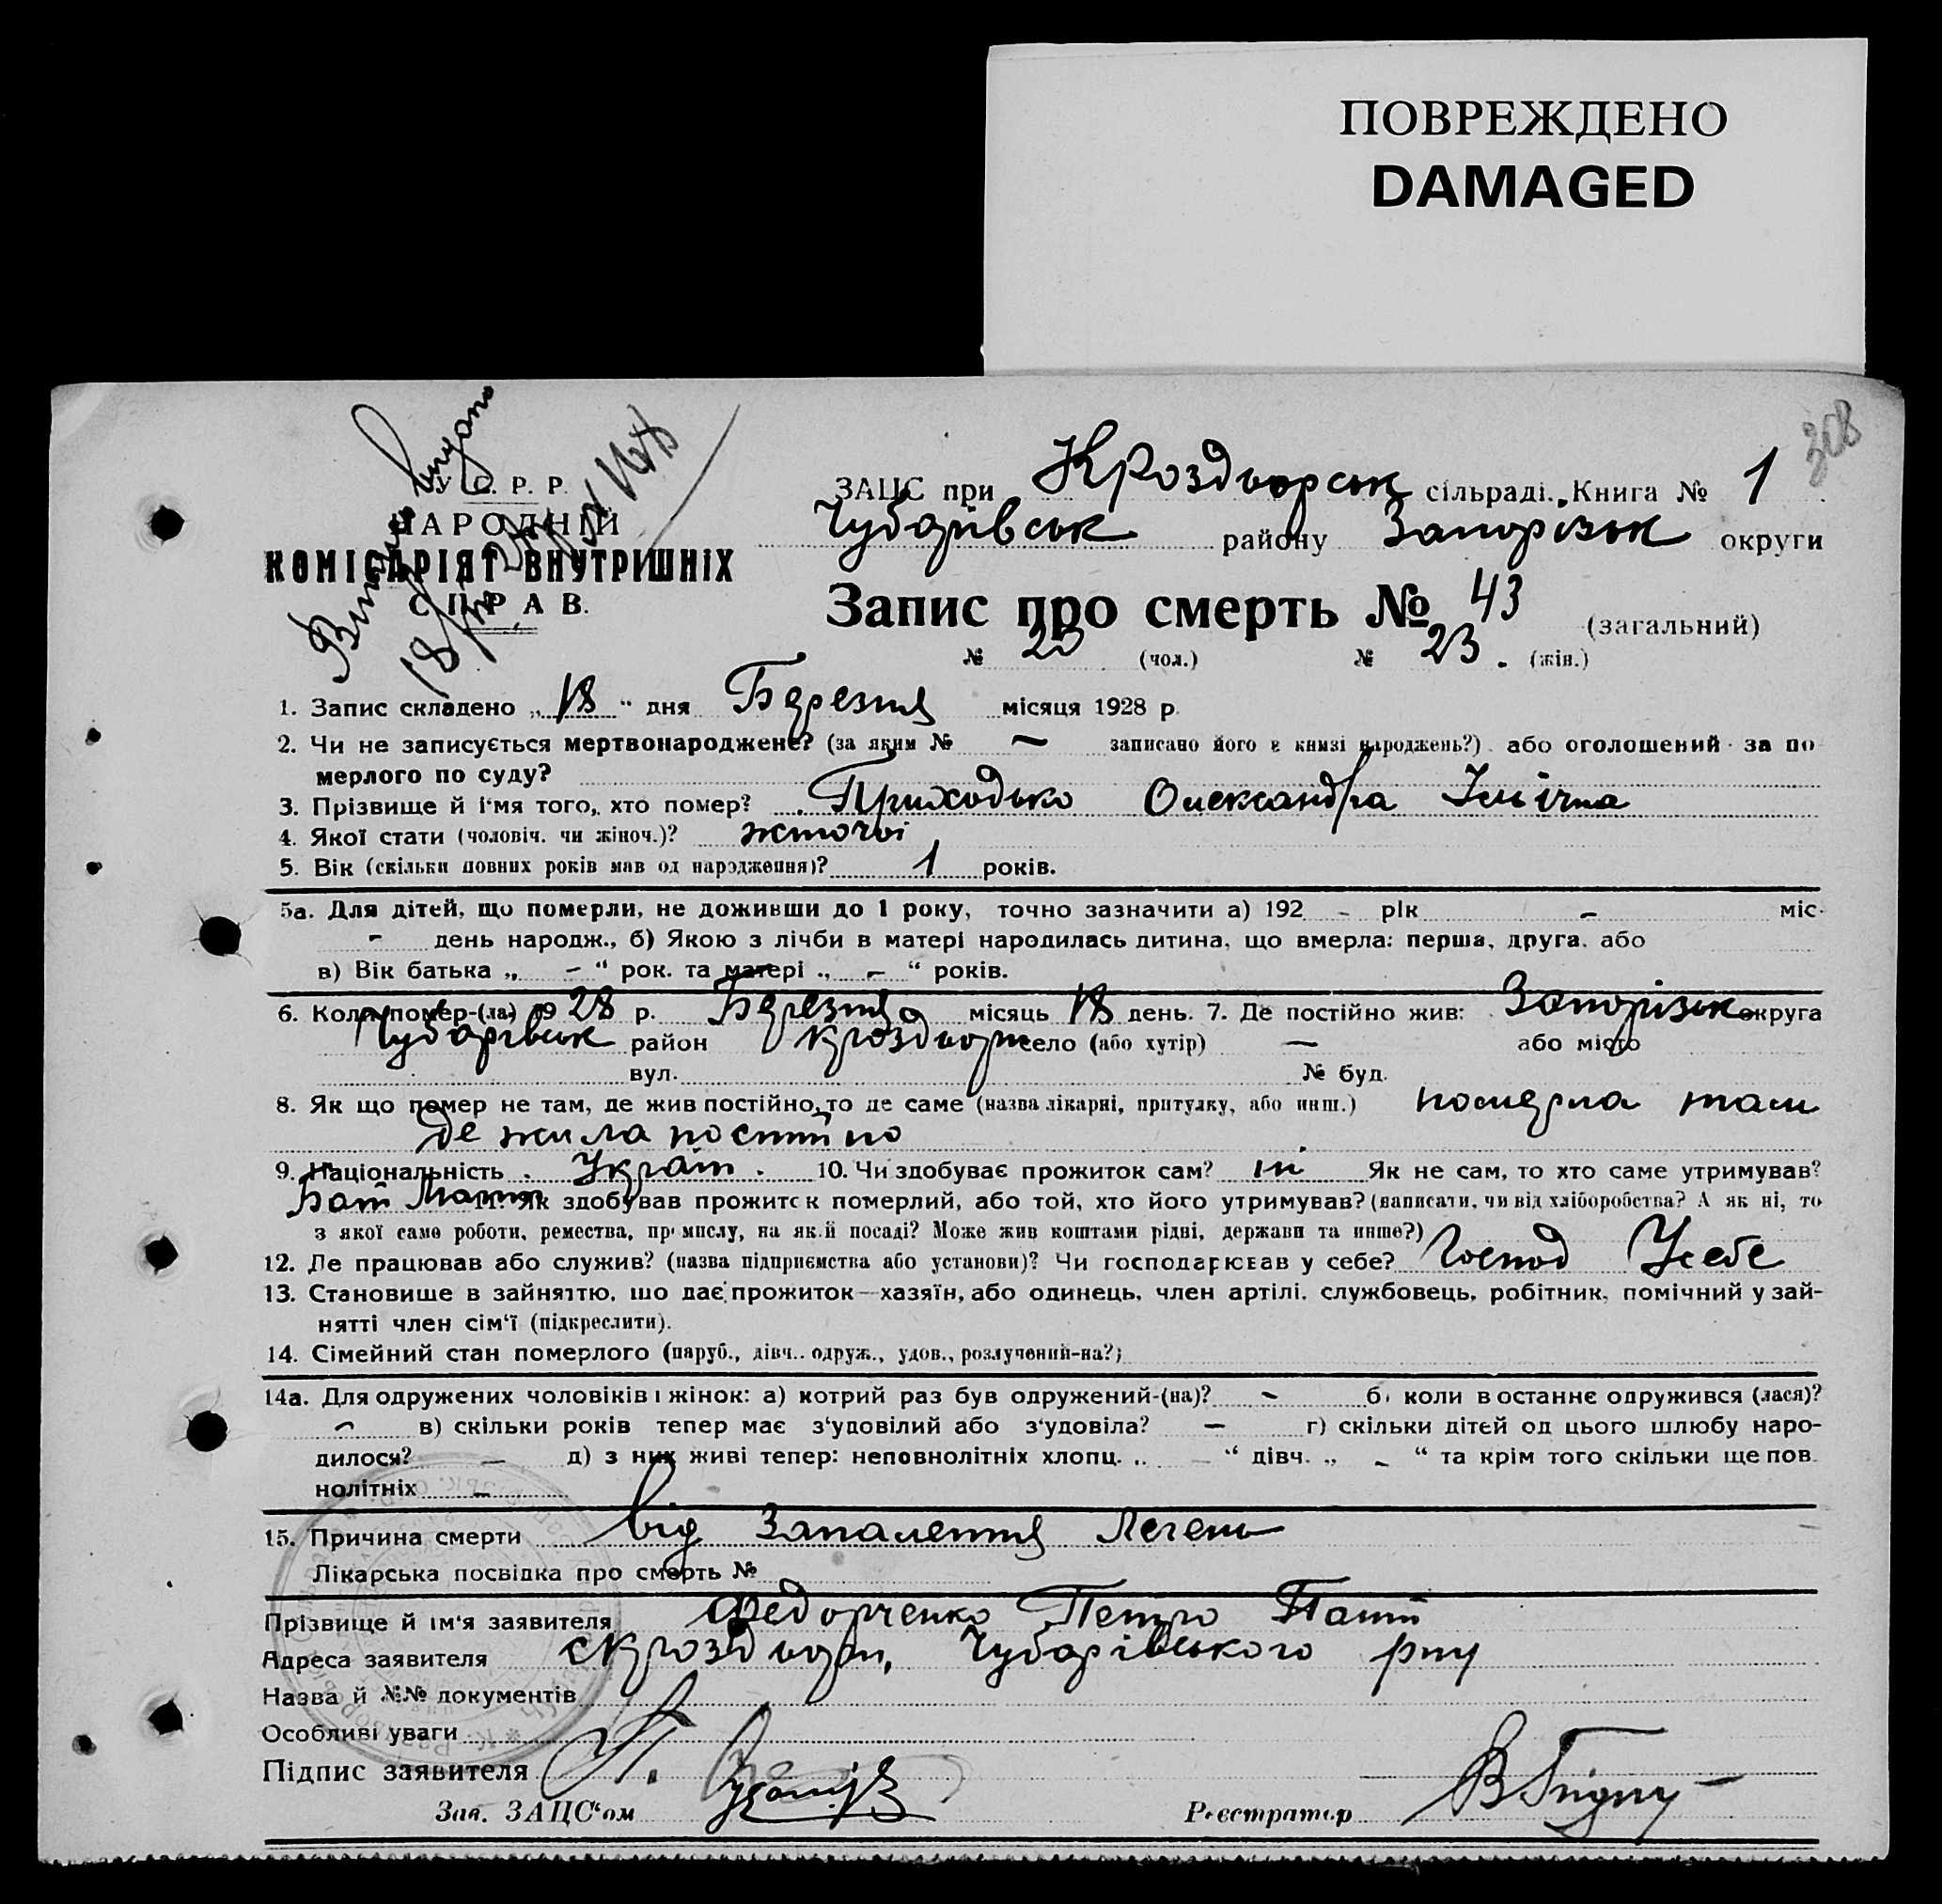 ПОВРЕЖДЕНО
DAMAGED
308
У. С. Р. Р.
НАРОДНІЙ
КОМІСАРІЯТ ВНУТРІШНІХ
СПРАВ.
ЗАЦС при Кроздворськ сільраді. Книга № 1
Чубарівськ району Запорізьк округи
Запис про смерть № 43 (загальний)
№ 20 (чол.) № 23. (жін.)
1. Запис складено „18“ дня Березня місяця 1928 р.
2. Чи не записується мертвонароджене? (за яким № — записано його в книзі народжень?) або оголошений за по-
мерлого по суду?
3. Прізвище й ім'я того, хто помер? Приходько Олександра Ільїчна
4. Якої стати (чоловіч. чи жіноч.)? жіночої
5. Вік (скільки повних років мав од народження)? 1 років.
5а. Для дітей, що померли, не доживши до 1 року, точно зазначити а) 192 - рік - міс.
- день народж., б) Якою з лічби в матері народилась дитина, що вмерла: перша, друга. або
в) Вік батька „ - “ рок. та матері „ - “ років.
6. Коли помер-(ла) 1928 р. Березня місяць 18 день. 7. Де постійно жив: Запорізьк округа
Чубарівськ район Кроздвори село (або хутір) — або місто
вул. № буд.
8. Як що помер не там, де жив постійно, то де саме (назва лікарні, притулку, або инш.) померла там
де жила постійно
9. Національність Україн. 10. Чи здобуває прожиток сам? ні Як не сам, то хто саме утримував?
Бат Мати 11. Як здобував прожиток померлий, або той, хто його утримував? (написати, чи від хліборобства? А як ні, то
з якої саме роботи, ремества, промислу, на якій посаді? Може жив коштами рідні, держави та инше?)
12. Де працював або служив? (назва підприємства або установи)? Чи господарював у себе? Господ Усебе
13. Становище в зайняттю, що дає прожиток—хазяїн, або одинець, член артілі, службовець, робітник, помічний у зай-
нятті член сім'ї (підкреслити).
14. Сімейний стан померлого (паруб., дівч., одруж., удов., розлучений-на?)
14а. Для одружених чоловіків і жінок: а) котрий раз був одружений-(на)? - б) коли востаннє одружився (лася)?
- в) скільки років тепер має з'удовілий або з'удовіла? — г) скільки дітей од цього шлюбу наро-
дилося? — д) з них живі тепер: неповнолітніх хлопц. „ — “ дівч. „ - “ та крім того скільки ще пов.
нолітніх -
15. Причина смерти від Запалення Легень
Лікарська посвідка про смерть №
Прізвище й ім'я заявителя Федорченко Петро
Адреса заявителя с Кроздвори, Чубарівського р-ну
Назва й №№ документів
Особливі уваги
Підпис заявителя
Зав. ЗАЦС'ом Реєстратор